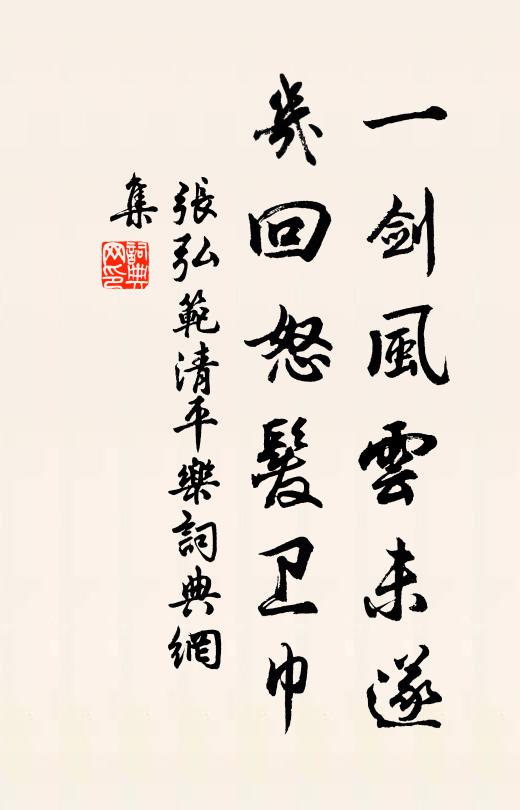 一劍風雲未遂
幾回怒髮卫巾
張弘範清平樂詞典網
集
詞典网印